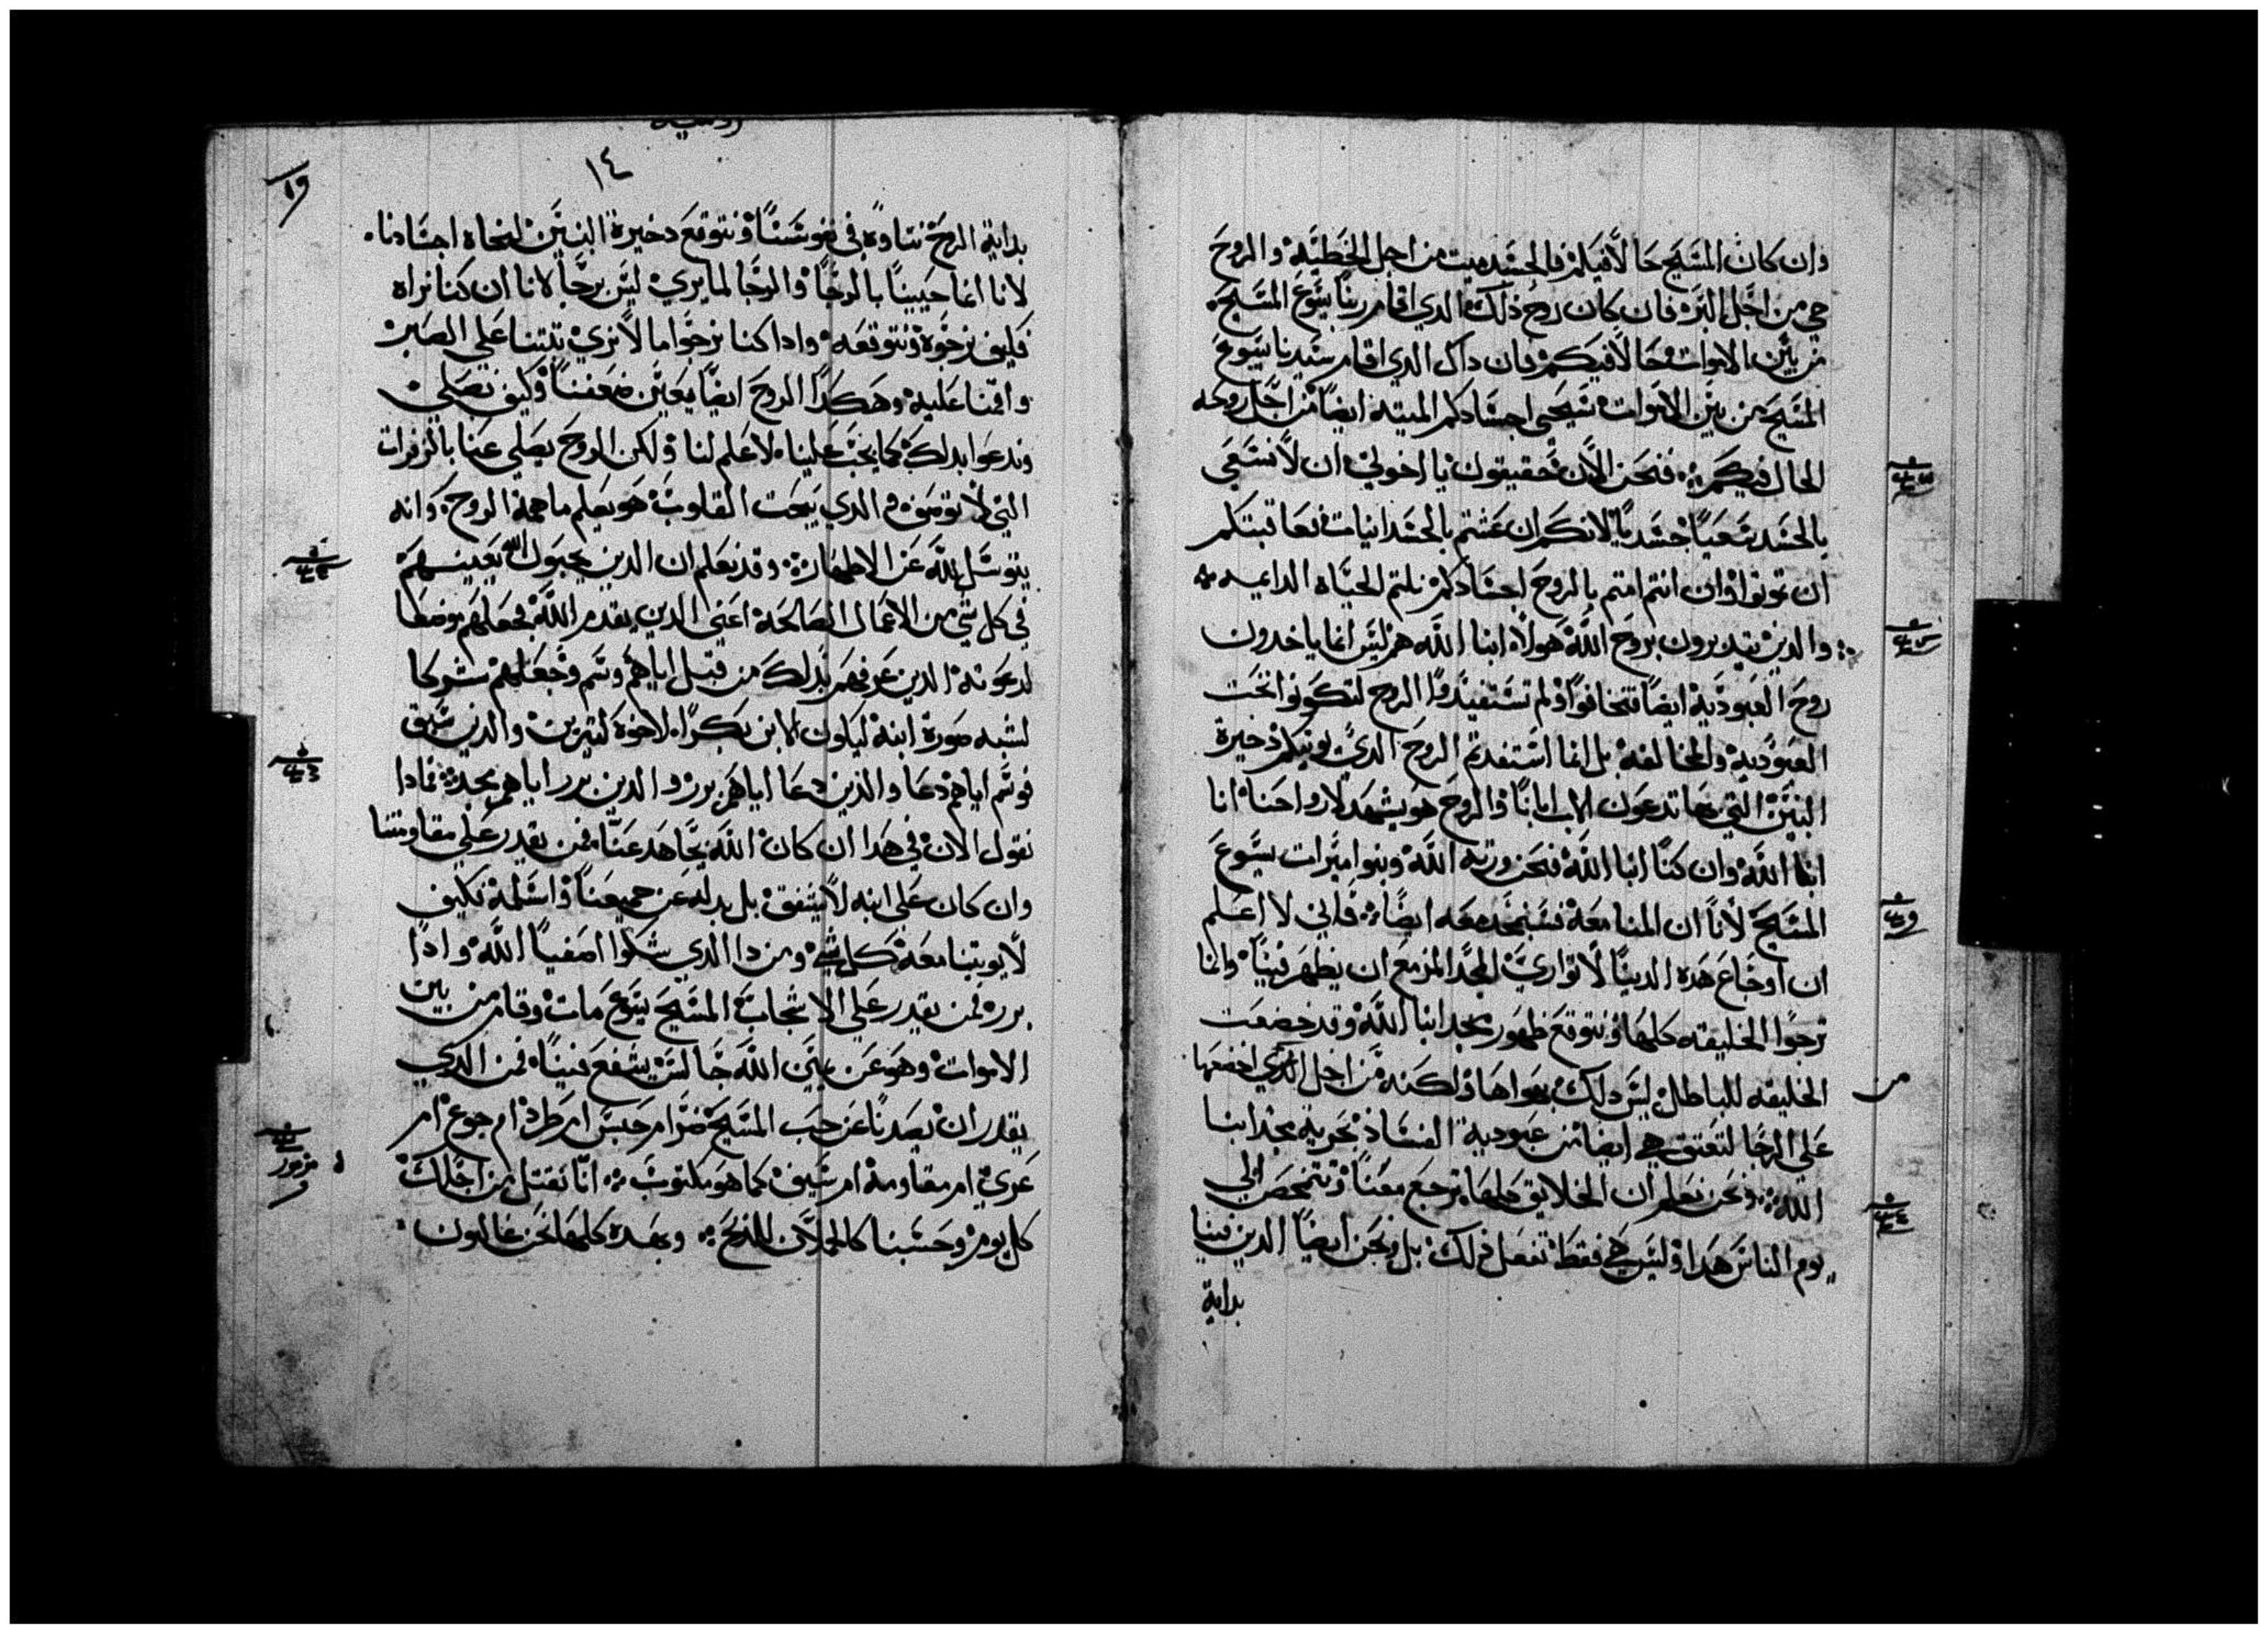 وان كان المسيح حالا فيكم فالجسد ميت من اجل الخطية والروح
حي من اجل البر فان كان روح ذلك الدي اقام ربنا يسوع المسيح
من بين الاموات حالا فيكم فان داك الدي اقام سيدنا يسوع
المسيح من بين الاموات سيحيى اجسادكم الميتة ايضا من اجل روحه
الحال فيكم فنحن الان حقيقون يا اخوتي ان لا نسعى
بالجسد سعيا جسديا لانكم ان عشتم بالجسدانيات فعاقبتكم
ان تموتوا وان انتم امتم بالروح اجسادكم نلتم الحياه الدايمه
والدين يتدبرون بروح الله هولاء ابنا الله هم ليس انما ياخدون
روح العبودية ايضا فتخافوا ولم تستفيدوا الروح لتكونوا تحت
العبودية والمخالفة بل انما استفدتم الروح الدي يوتيكم دخيرة
البنين التي بها تدعون الاب ابانا والروح هو يشهد لارواحنا انا
ابنا الله وان كنا ابنا الله فنحن ورثة الله وبنوا ميرات يسوع
المسيح لانا ان المنا معه فسنمجد معه ايضا فاني لا اعلم
ان اوجاع هده الدنيا لا توازي المجد المزمع ان يظهر فينا وانما
ترجوا الخليقه كلها وتتوقع ظهور مجد ابنا الله وقد خضعت
الخليقه للباطل ليس دلك بهواها ولكنه من اجل الدي اخضعها
على الرجا لتعتق هي ايضا من عبودية الفساد بحرية مجد ابنا
الله ونحن نعلم ان الخلايق كلها ترجع معنا وتتمخض الى
يوم الناس هدا وليس هي فقط تفعل دلك بل ونحن ايضا الدين فينا
بداية
١٤
بداية الروح نتاوه في نفوسنا ونتوقع دخيرة البنين لنجاه اجسادنا
لانا انما حيينا بالرجا والرجا لما يرى ليس برجا لانا ان كنا نراه
فكيف نرجوه ونتوقعه وادا كنا نرجوا ما لا نرى تبتنا على الصبر
واقمنا عليه وهكدا الروح ايضا يعين ضعفنا وكيف نصلي
وندعوا بدلك كما يجب علينا لا علم لنا ولكن الروح يصلي عنا بالزفرات
التي لا توصف والدي يبحت القلوب هو يعلم ما همة الروح وانه
يتوسل لله عن الاطهار وقد نعلم ان الدين يحبون الله يعينهم
في كل شي من الاعمال الصالحة اعني الدين يقدم الله فجعلهم موضعا
لدعوته الدين عرفهم بدلك من قبل اياهم وسم وجعلهم شركا
لشبه صورة ابنه ليكون الابن بكرا لاخوة كتيرين والدين سبق
فوسم اياهم دعا والدين دعا اياهم برر والدين برر اياهم مجد فمادا
نقول الان في هدا ان كان الله يجاهد عنا فمن يقدر على مقاومتنا
وان كان على ابنه لا يشفق بل بدله عن جميعنا واسلمه فكيف
لا يوتينا معه كل شي ومن دا الدي يشكوا اصفيا الله وادا
برره فمن يقدر على الاشجاب المسيح يسوع مات وقام من بين
الاموات وهو عن يمين الله جالس يشفع فينا فمن الدي
يقدر ان يصدنا عن حب المسيح ضر ام حبس ام طرد ام جوع ام
عري ام مقاومة ام سيف كما هو مكتوب انا نقتل من اجلك
كل يوم وحسبنا كالحملان للذبح وبهده كلها نحن غالبون
مزمور